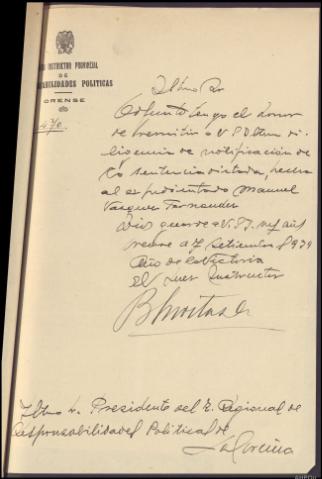 INSTRUCTOR PROVINCIAL
DE
RESPONSABILIDADES POLITICAS
ORENSE
Iltmo Sr
Adjunto tengo el honor
de remitir a V.S. Iltma di-
ligencia de notificación de
la sentencia dictada, hecha
al expedientado Manuel
Vazquez Fernandez
Dios guarde a V.S.I. ms ans
7 Setiembre 1939
Año de la Victoria
El Juez Instructor
Iltmo Sr. Presidente del T. Regional de
Responsabilidades Politicas de
La Coruña